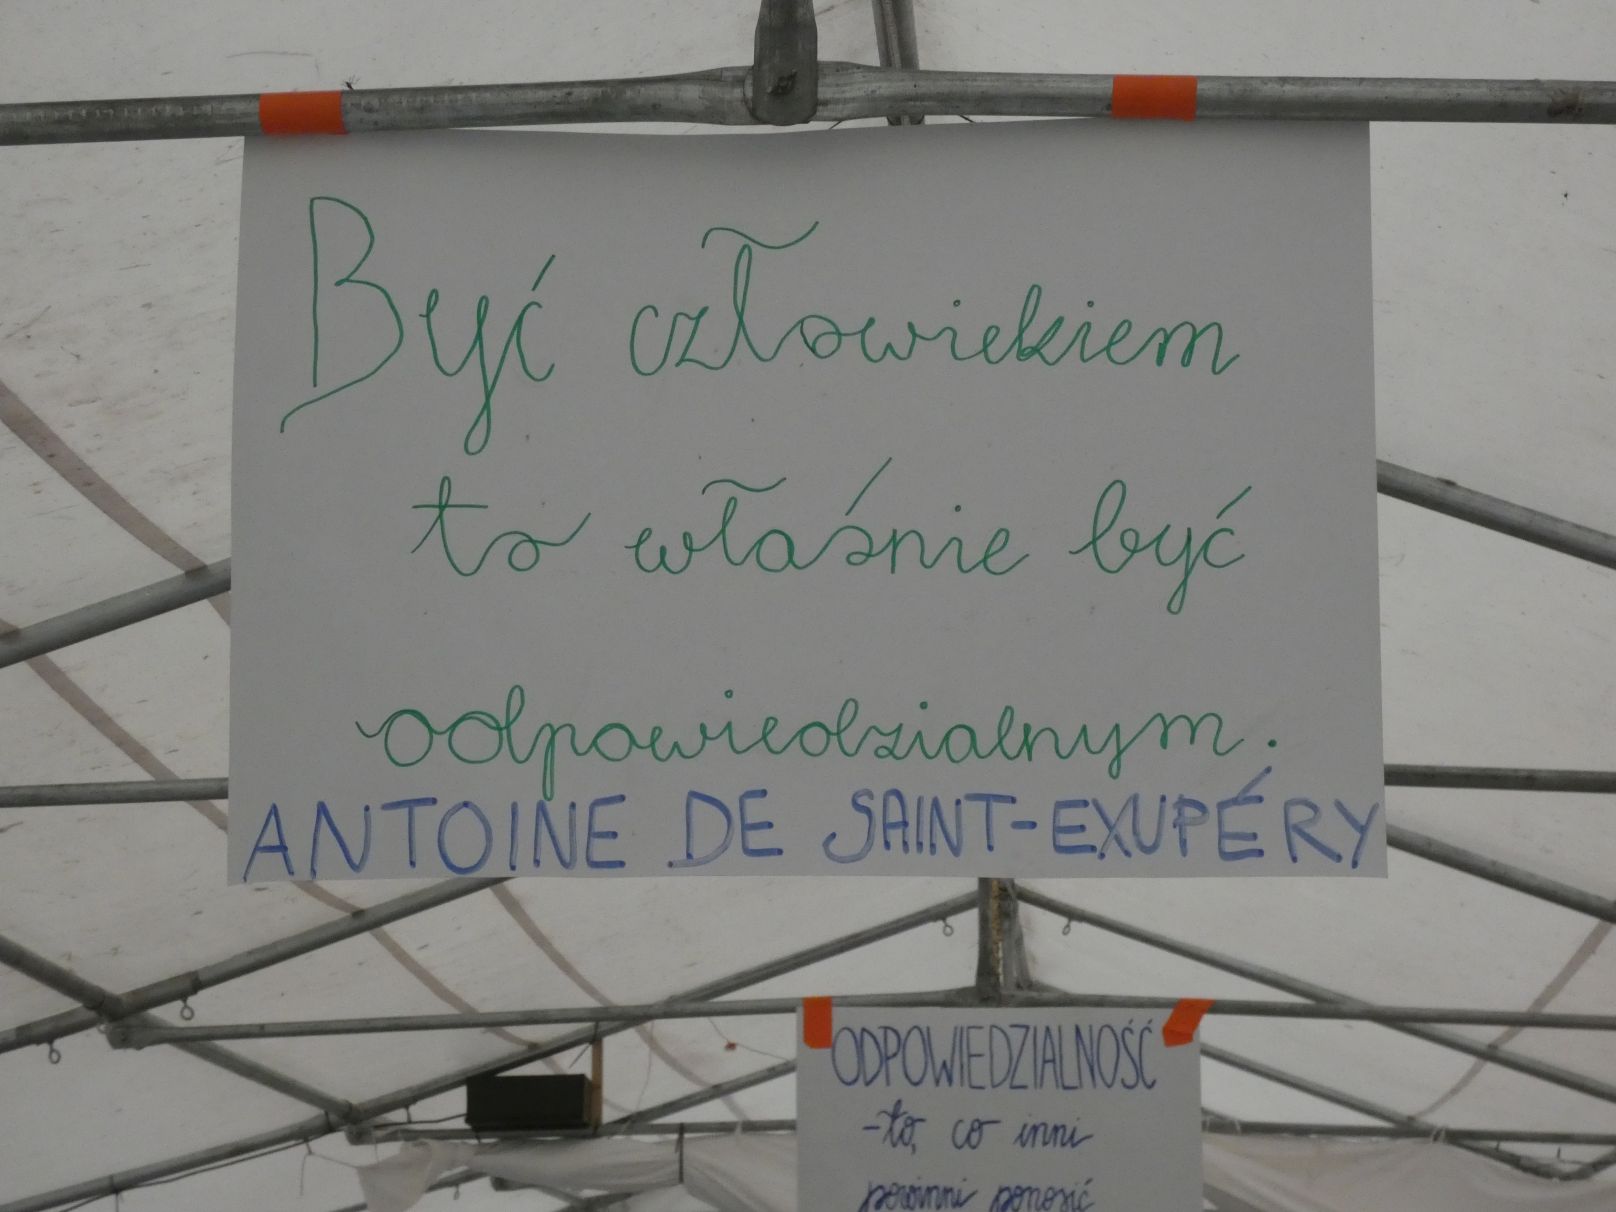 Być człowiekiem
to właśnie być
odpowiedzialnym.
ANTOINE DE SAINT-EXUPÉRY
ODPOWIEDZIALNOŚĆ
-to, co inni
powinni ponosić